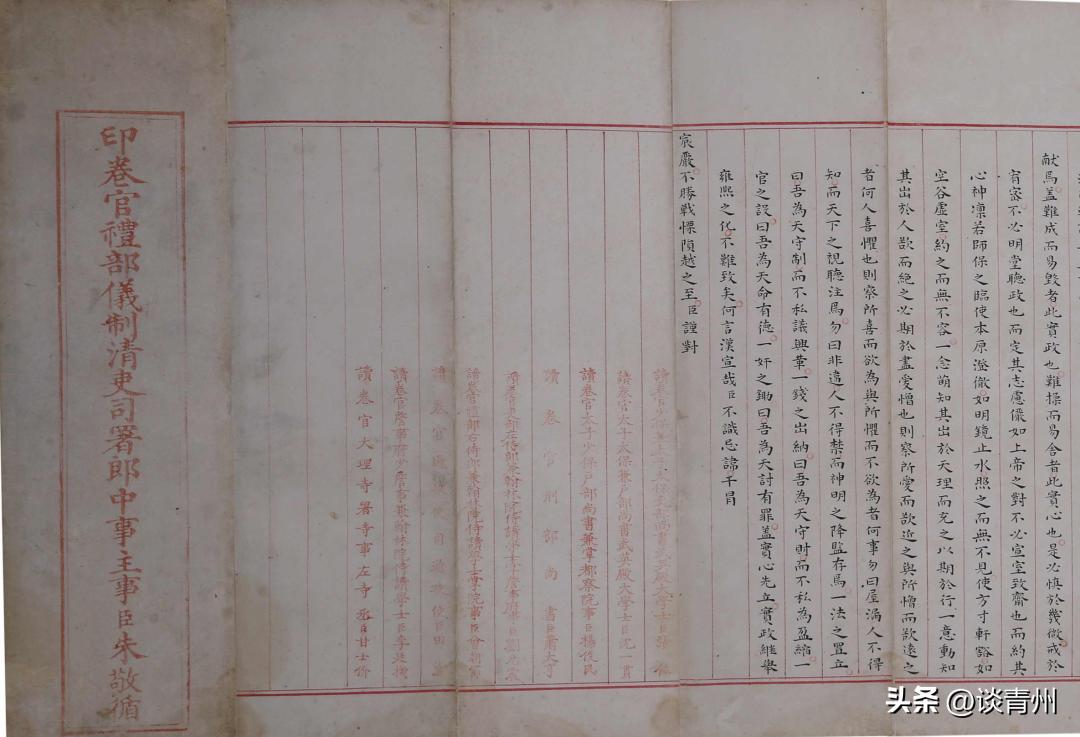 献焉蓋難成而易毀者此實政也難操而易舍者此實心也是必慎於幾微戒於
宥密不必明堂聽政也而定其志慮儼如上帝之對不必宣室致齋也而約其
心神凛若師保之臨使本原澄徹如明鏡止水照之而無不見使方寸軒豁如
空谷虛室約之而無不容一念萌知其出於天理而充之以期於行一意動知
其出於人欲而絕之必期於盡愛憎也則察所愛而欲近之與所憎而欲遠之
者何人喜懼也則察所喜而欲為與所懼而不欲為者何事勿曰屋漏人不得
知而天下之視聽注焉勿曰非違人不得禁而神明之降監存焉一法之置立
曰吾為天守制而不私議興革一錢之出納曰吾為天守財而不私為盈縮一
官之設曰吾為天命有德一奸之鋤曰吾為天討有罪蓋實心先立實政繼舉
雍熙之化不難致矣何言漢宣哉臣不識忌諱干冒
宸嚴不勝戰慄隕越之至臣謹對
讀卷官太子太保兼戶部尚書武英殿大學士臣沈一貫
讀卷官太子少保戶部尚書兼掌都察院事臣楊俊民
讀卷官刑部尚書臣蕭大亨
讀卷官詹事府少詹事兼翰林院侍讀學士臣李廷機
讀卷官大理寺署寺事左寺丞臣甘士价
印卷官禮部儀制清吏司署郎中事主事臣朱敬循
头条 @谈青州